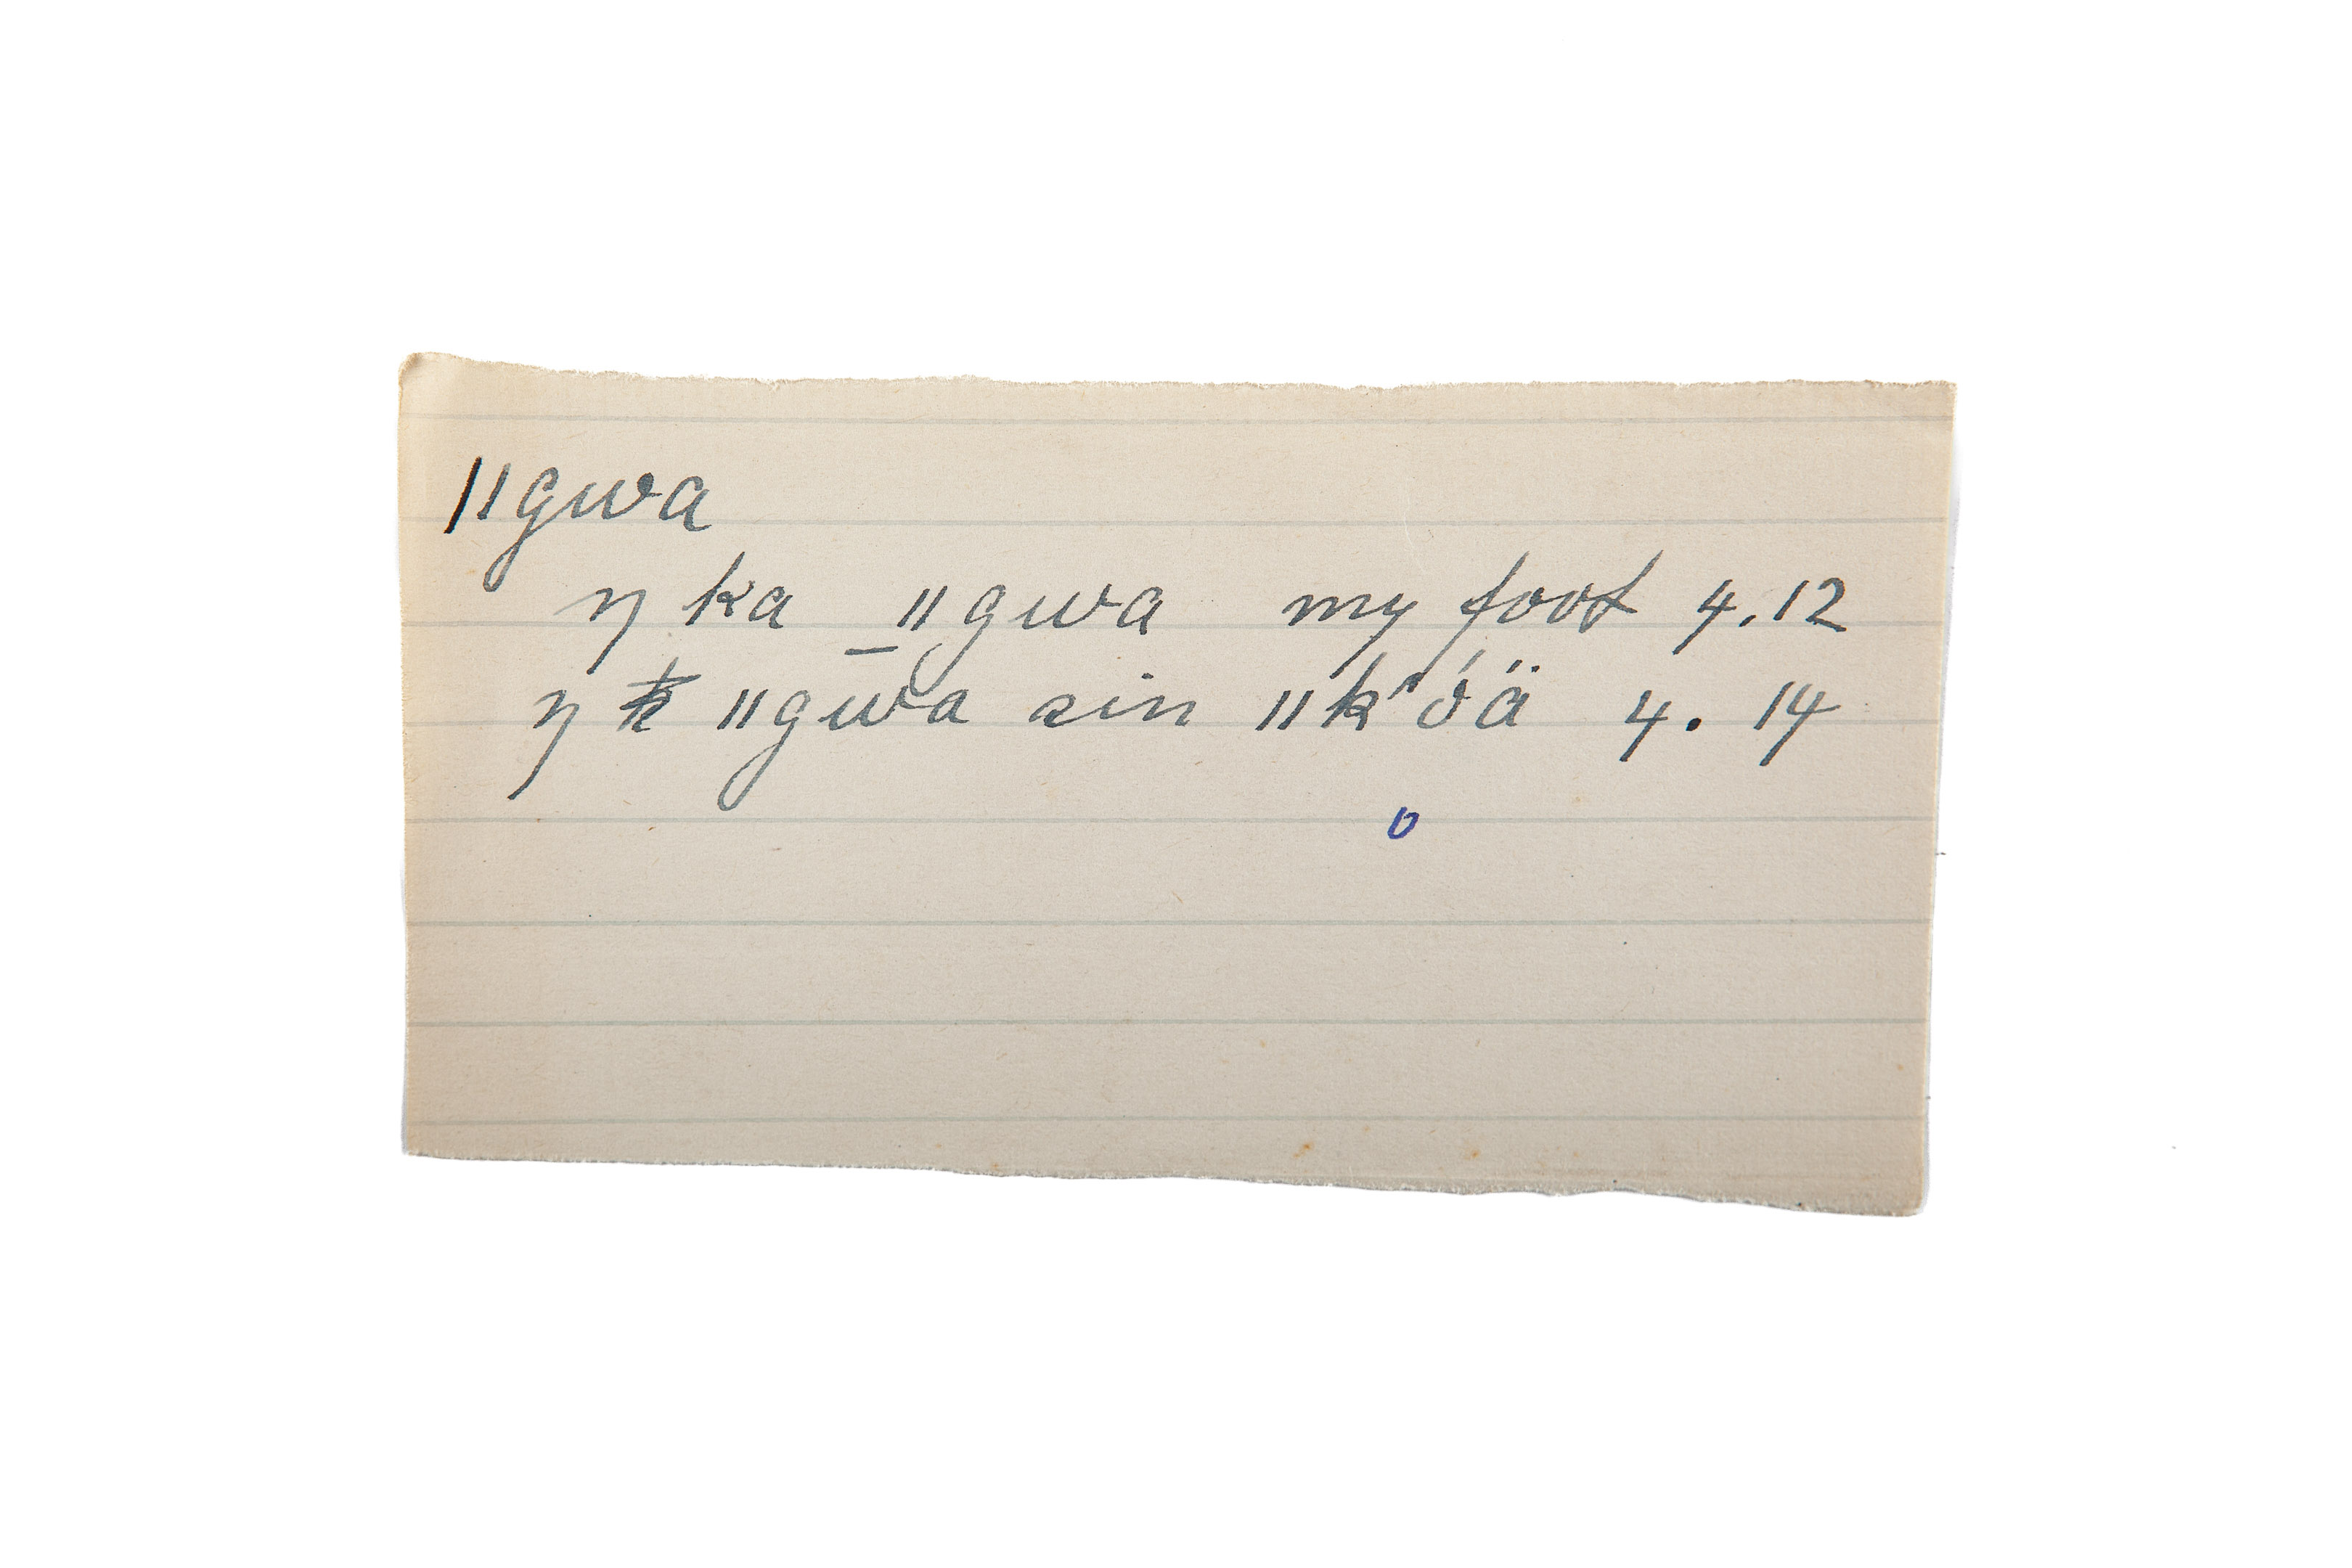 ǁgwa
ŋ ka _ ǁgwa my foot 4.12
ŋ ǁgwa sin ǁkʼóä 4. 14
o